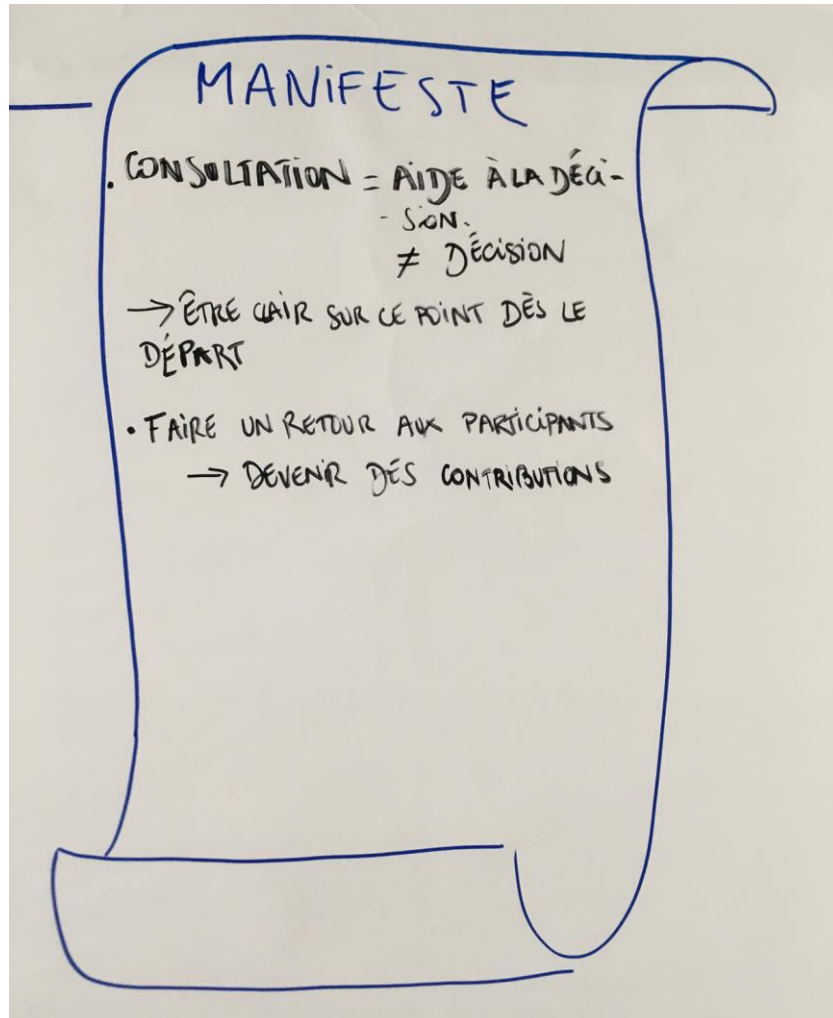 MANiFESTE
. CONSULTATiON = AiDE À LA DÉCi-
- SiON.
≠ DÉCiSiON
→ ÊTRE CLAiR SUR CE POiNT DÈS LE
DÉPART
• FAiRE UN RETOUR AUX PARTiCiPANTS
→ DEVENiR DES CONTRiBUTiONS